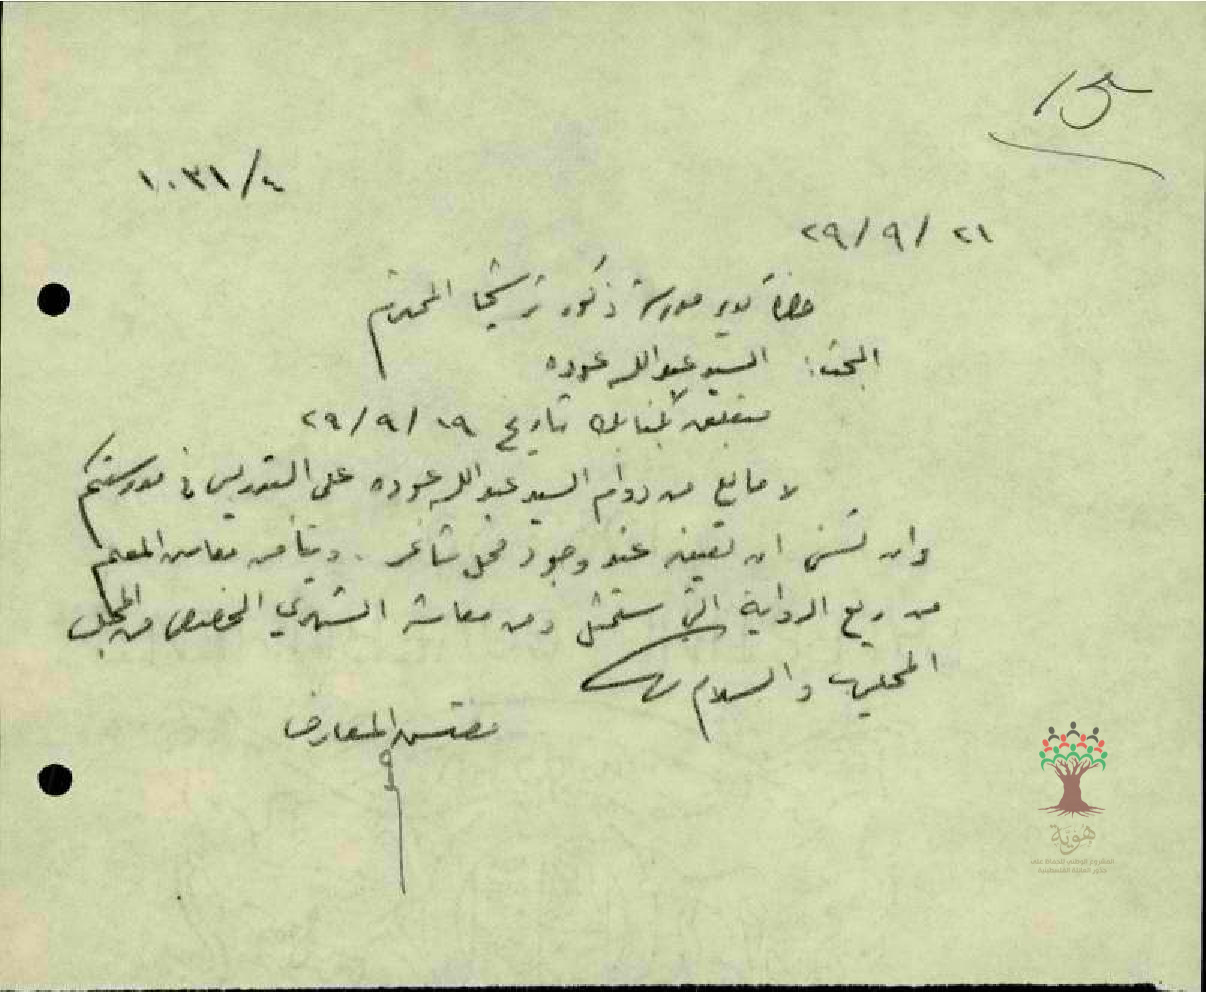 ١٠٣١/٤
٢٩/٩/٢١
حضرة مدير مدرسة ذكور ترشيحا المحترم
المبحث: السيد عبد الله عوده
تاريخ ٢٩/٩/١٩
لا مانع من دوام السيد عبد الله عوده على التدريس في مدرستكم
ان تعينه عند وجود محل شاغر. معاش المعلم
من ريع الرواية التي ستمثل ومن معاشه الشهري المخصص من المجلس
والسلام
مفتش المعارف
هوية
المشروع الوطني للحفاظ على
جذور العائلة الفلسطينية